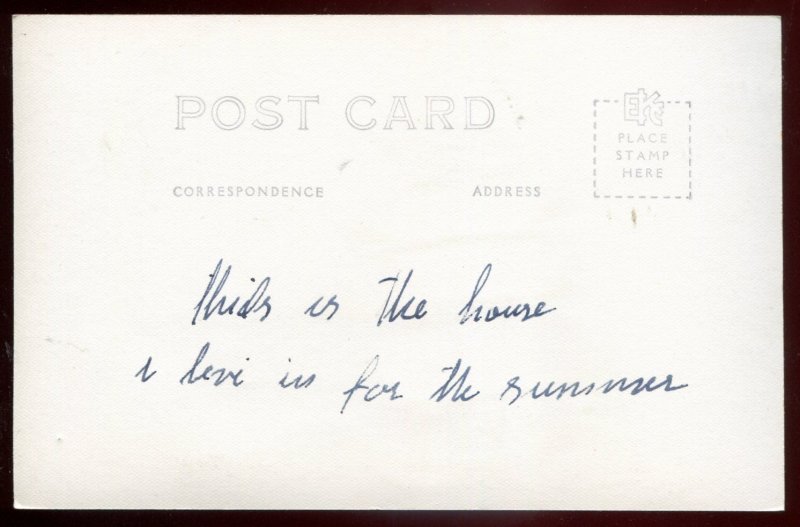 POST CARD
EKC
PLACE
STAMP
HERE
CORRESPONDENCE ADDRESS
thids is the house
i levi in for the summer